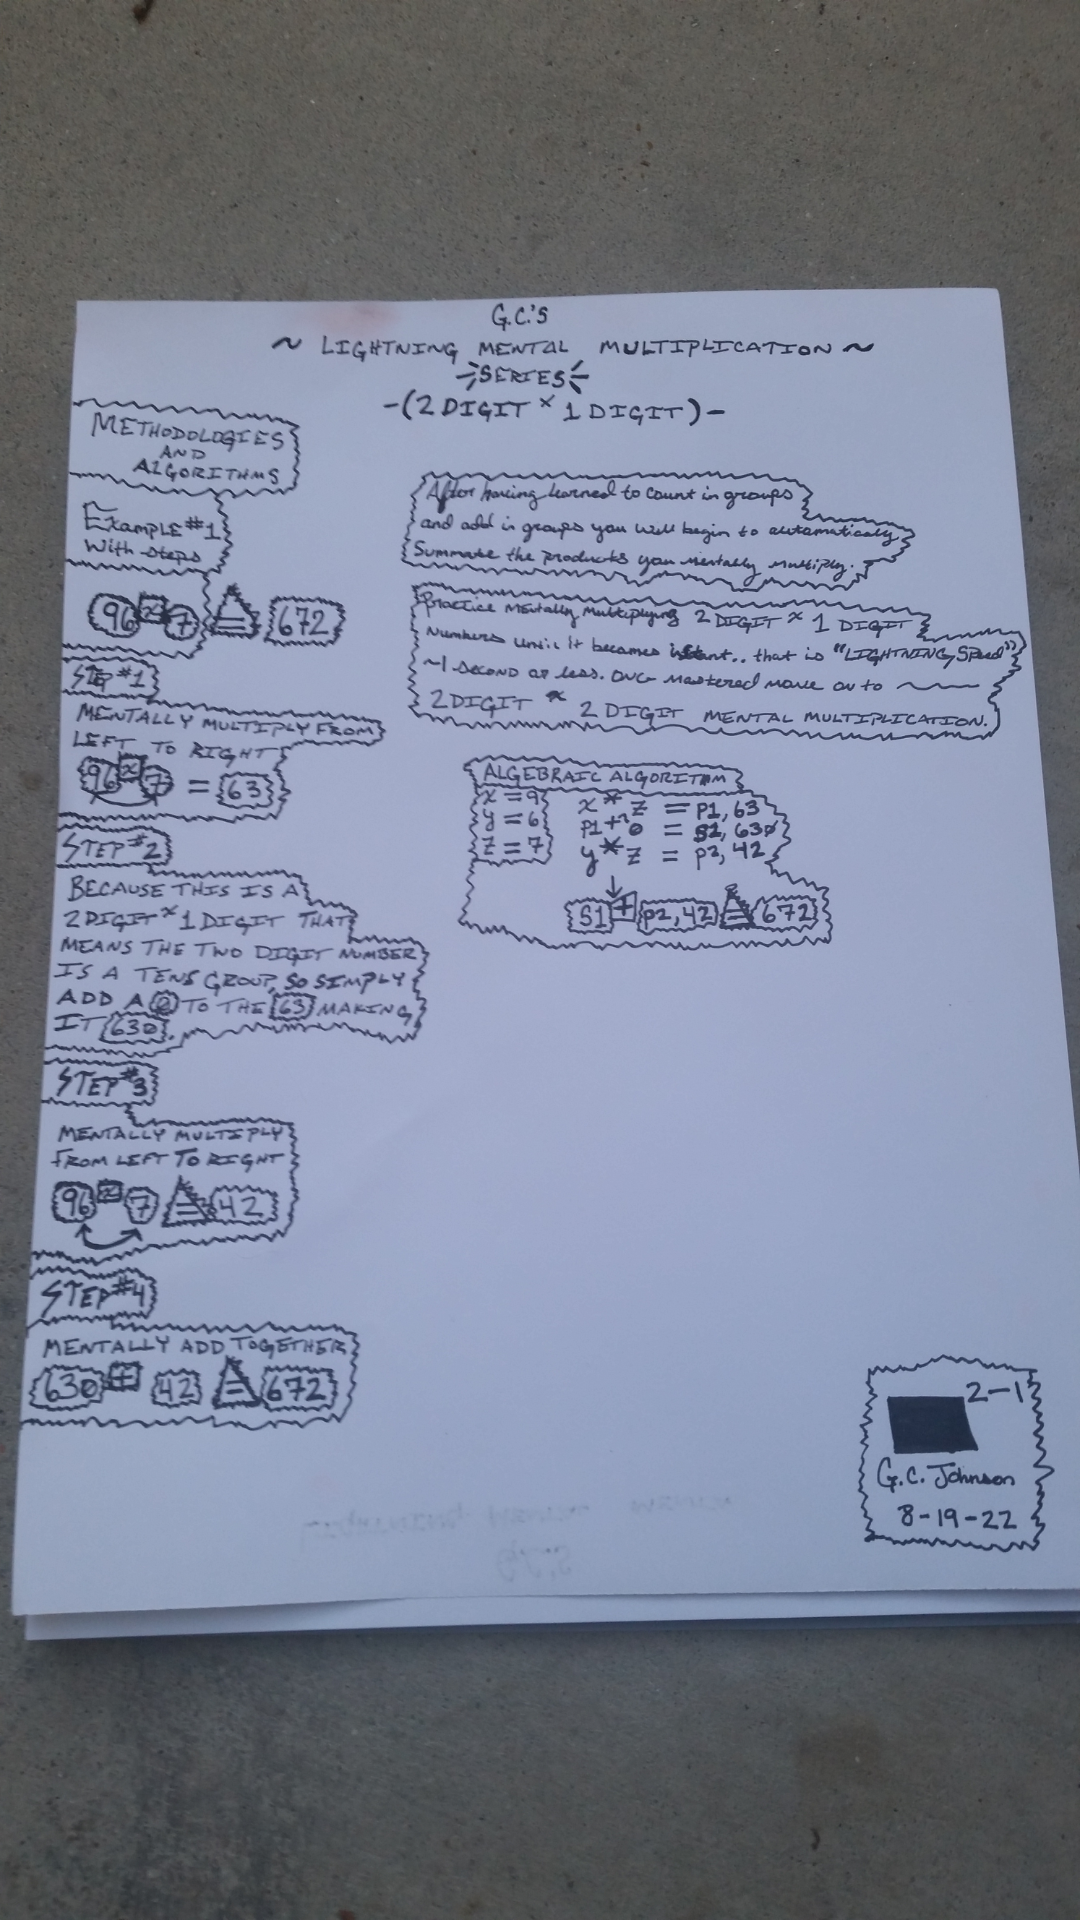 G.C.'S
~ LIGHTNING MENTAL MULTIPLICATION ~
SERIES
-(2 DIGIT × 1 DIGIT)-
METHODOLOGIES
AND
ALGORITHMS
Example #1
With steps
96 × 7 = 672
STEP #1
MENTALLY MULTIPLY FROM
LEFT TO RIGHT
96 × 7 = 63
STEP #2
BECAUSE THIS IS A
2 DIGIT × 1 DIGIT THAT
MEANS THE TWO DIGIT NUMBER
IS A TENS GROUP, SO SIMPLY
ADD A 0 TO THE 63 MAKING
IT 630.
STEP #3
MENTALLY MULTIPLY
FROM LEFT TO RIGHT
96 × 7 = 42
STEP #4
MENTALLY ADD TOGETHER
630 + 42 = 672
After having learned to count in groups
and add in groups you will begin to automatically
Summate the products you mentally multiply.
Practice mentally multiplying 2 DIGIT × 1 DIGIT
Numbers until it becomes instant.. that is "LIGHTNING Speed"
~1 second or less. Once mastered move on to ~
2 DIGIT × 2 DIGIT MENTAL MULTIPLICATION.
ALGEBRAIC ALGORITHM
x = 9 x * z = P1, 63
y = 6 P1 + 0 = S1, 630
z = 7 y * z = P2, 42
S1 + P2, 42 = 672
2-1
G.C. Johnson
8-19-22